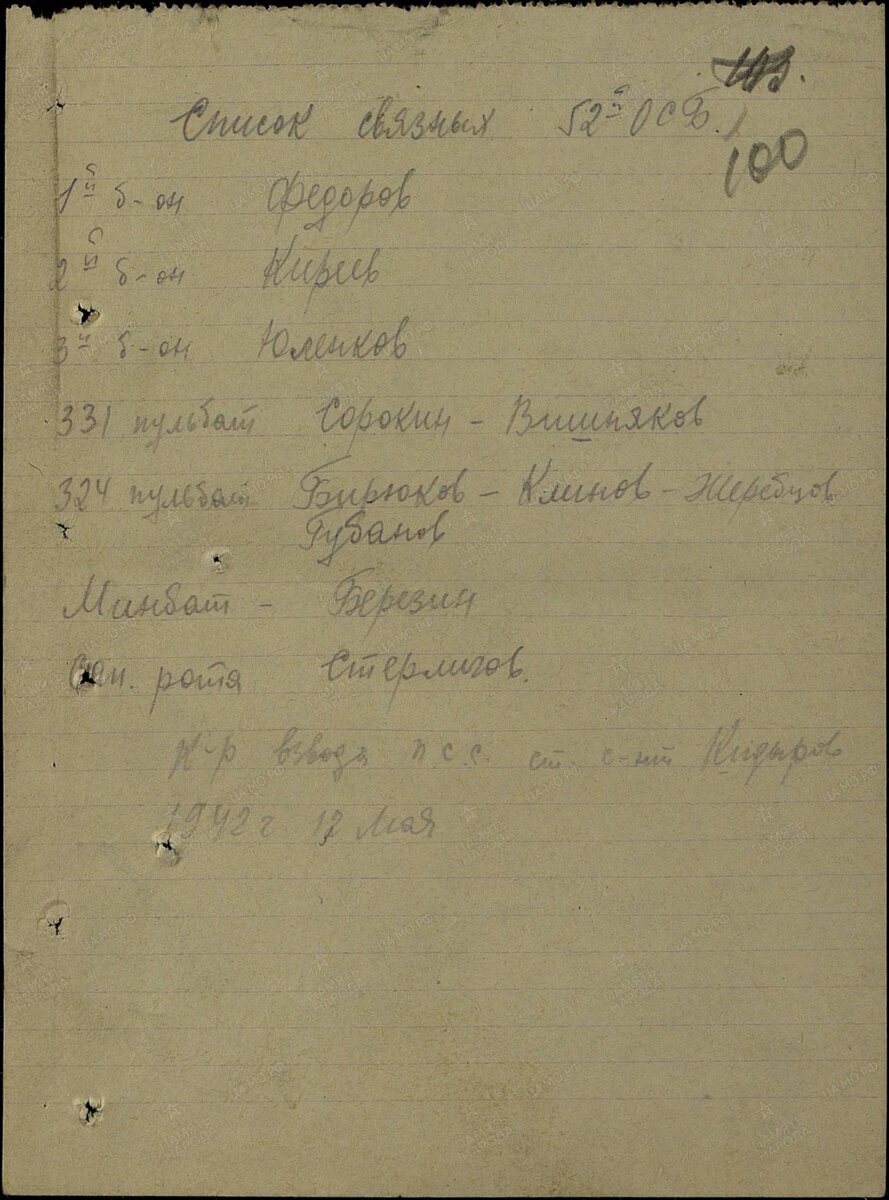 103.
Список связных 52й ОСБ.
100
1й б-он Федоров
2й б-он Кирив
3й б-он Юленков
331 пульбат Сорокин - Вишняков
324 пульбат Бирюков - Клинов - Жеребцов
Губанов
Минбат - Березин
Сан. рота Стерлигов.
К-р взвода п с.с. ст. с-нт Кидыров
1942 г 12 Мая